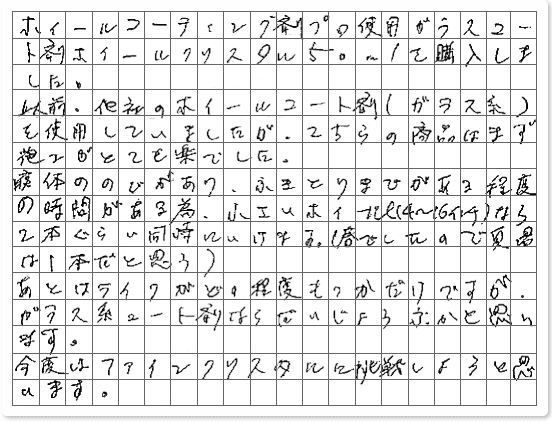 ホイールコーティング剤プの使用がラスコー
ト剤ホイールクリスタル50m1を購入しま
した。
以前、他社のホイールコート剤(ガラス系)
を使用していましたが、こちらの商品はまず
施工がとても楽でした。
液体ののびがあり、ふきとりまでがある程度
の時間がある為、小さいホイール(14〜16インチ)なら
2本ぐらい同時にいけます。(春でしたので真夏
は1本だと思う)
あとはライフがどの程度もつかだけですが、
ガラス系コート剤はらだいじょうぶかと思い
ます。
今度はファインクリスタルに挑戦しようと思
います。